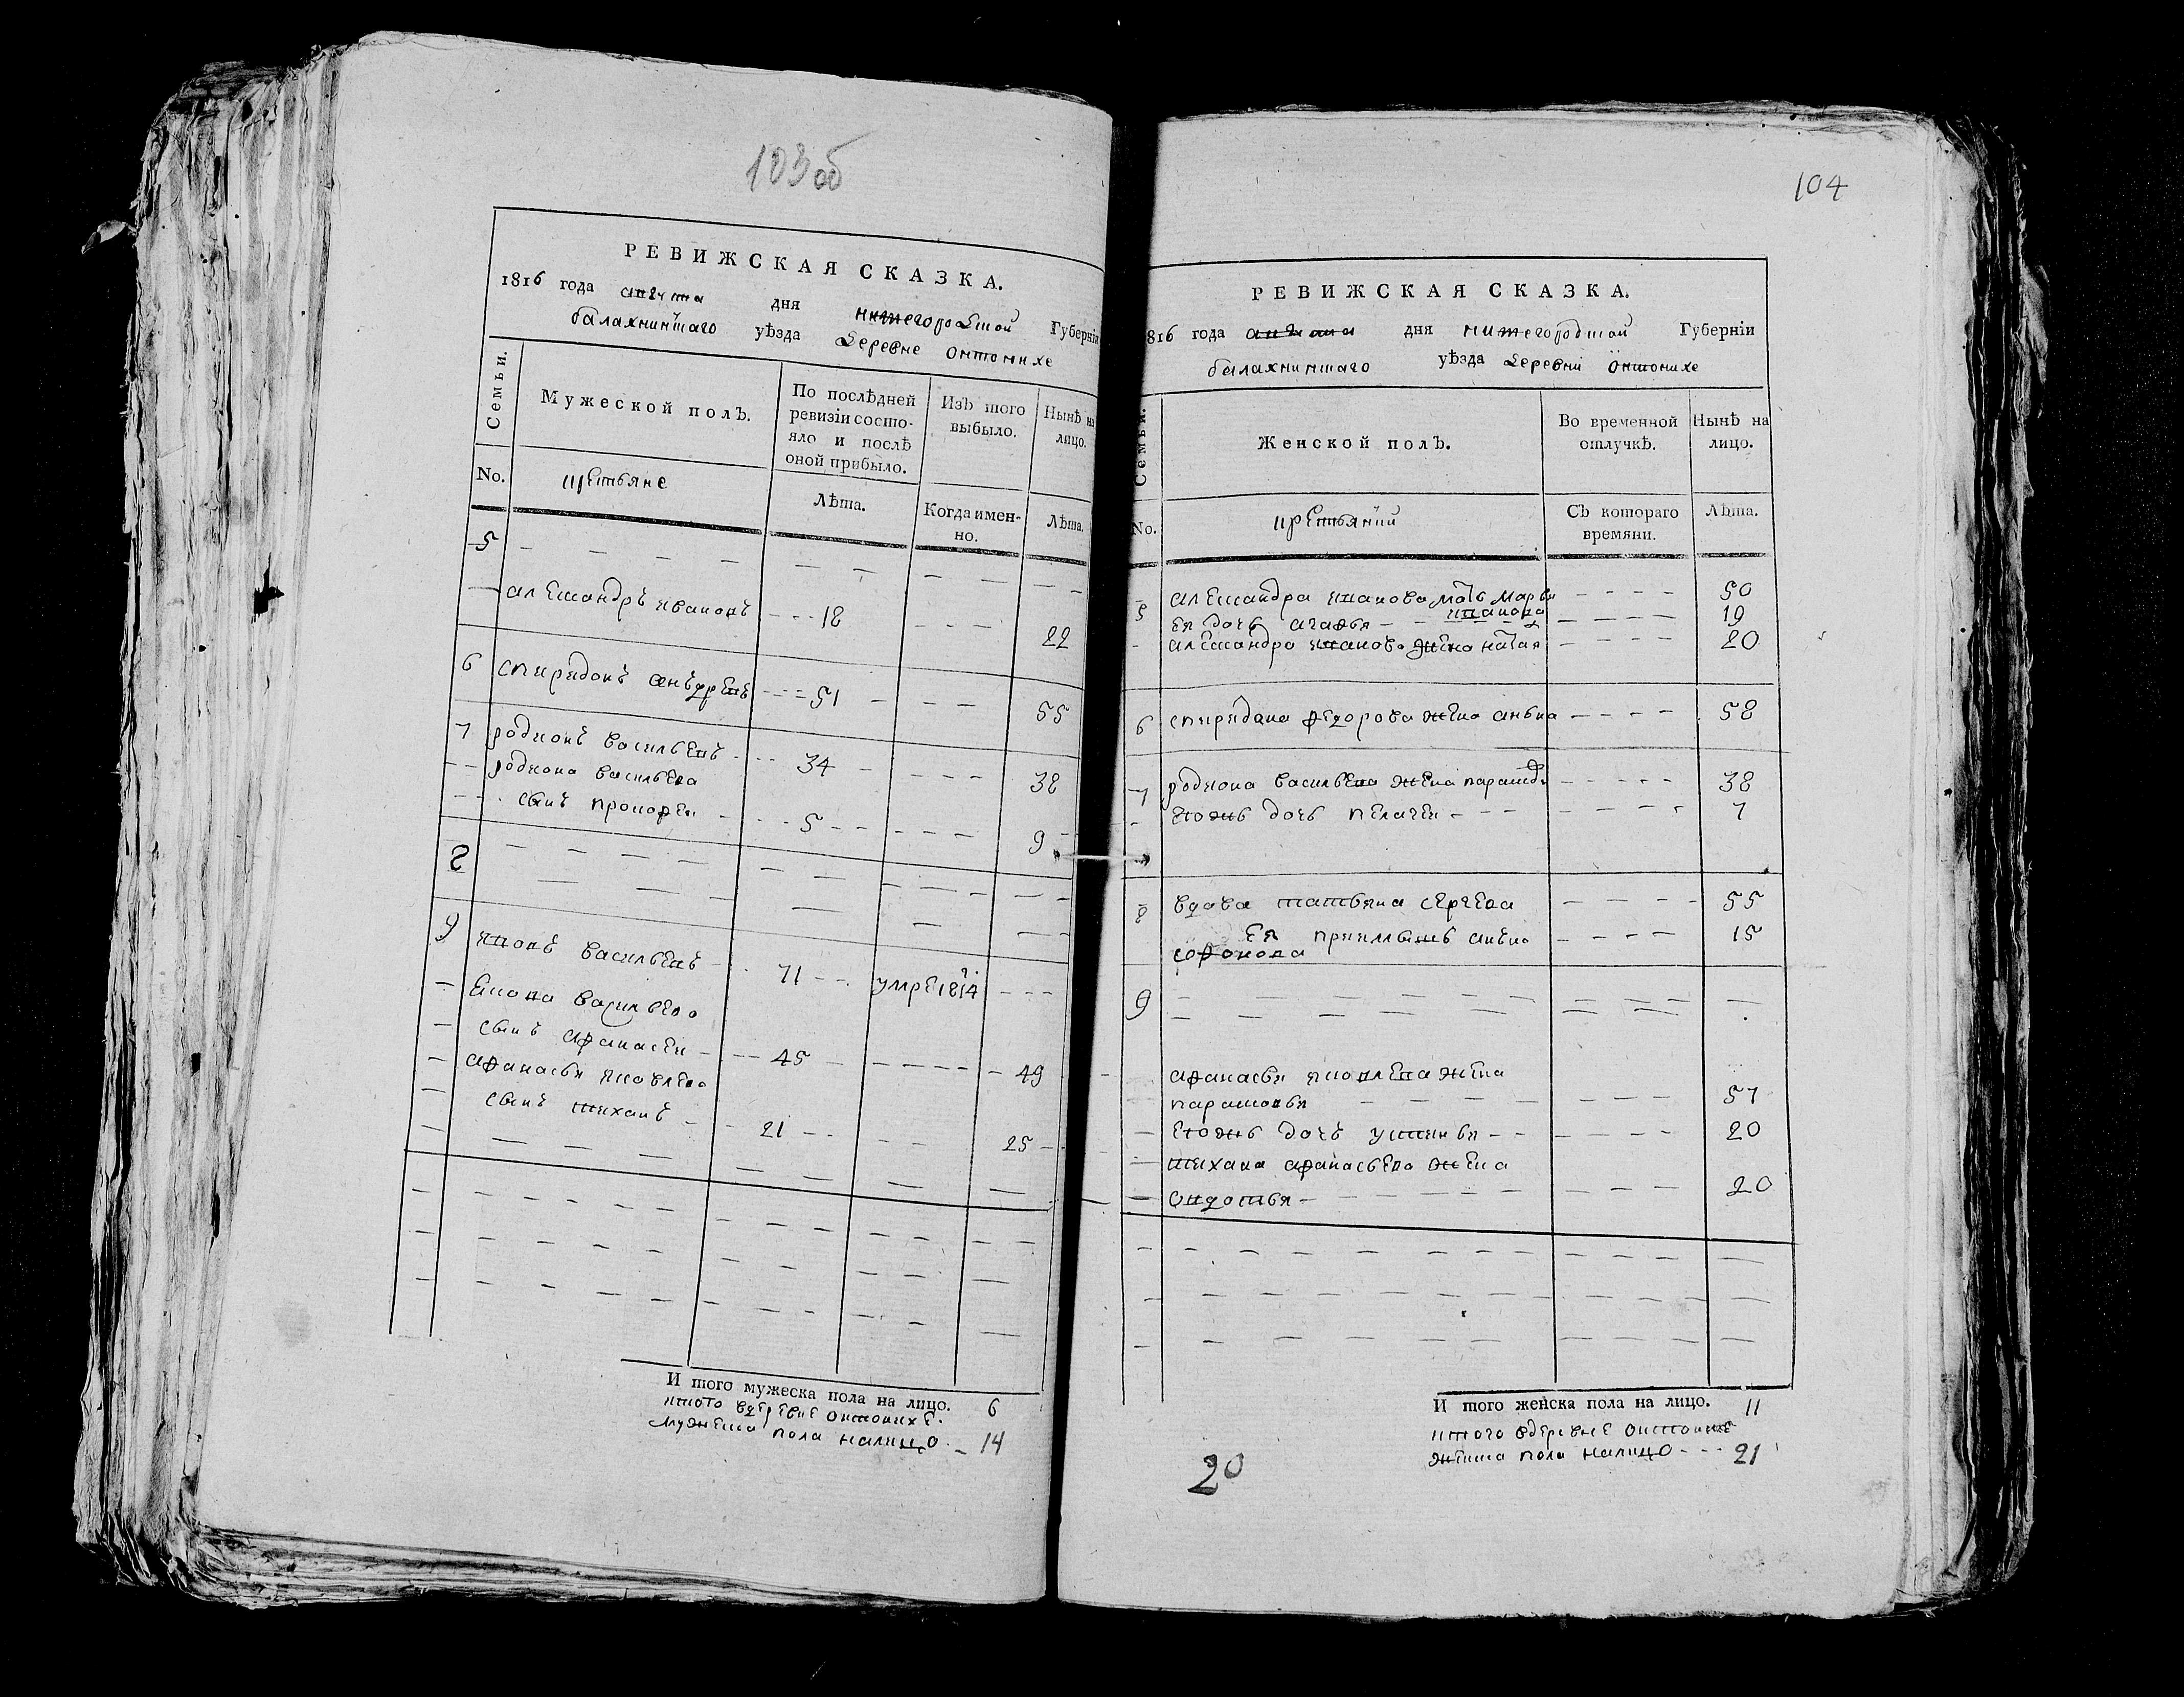 103 об
РЕВИЖСКАЯ СКАЗКА.
1816 года дня нижегородской Губерніи
балахнинскаго уѣзда деревне онтонихе
Семьи.
Мужеской полъ.
По послѣдней ревизіи состояло и послѣ оной прибыло.
Изъ того выбыло.
Нынѣ на лицо.
No.
крестьяне
Лѣта.
Когда именно.
Лѣта.
5
александръ ивановъ 18 22
6 спиридонъ 51 55
7 родионъ васильевъ 34 38
родиона васильева
сынъ прокофеи 5 9
8
9 яковъ васильевъ 71 умре 1814
якова васильева
сынъ афанасеи 45 49
афанасья яковлева
сынъ тиханъ 21 25
И того мужеска пола на лицо. 6
итого вдеревне онтонихе
мужеска пола налицо 14
104
РЕВИЖСКАЯ СКАЗКА.
816 года дня нижегородской Губерніи
балахнинскаго уѣзда деревни онтонихе
Семьи.
Женской полъ.
Во временной отлучкѣ.
Нынѣ на лицо.
No.
Съ котораго времяни.
Лѣта.
5 александра иванова мать марья 50
иванова
ея дочь агафья 19
александра иванова жена 20
6 спиридона федорова жена анъна 58
7 родиона васильева жена 38
ево жь дочь пелагея 7
8 вдова татьяна сергева 55
ея приимышь анъна 15
9
афанасья яковлева жена
парасковья 57
ево жь дочь устинья 20
тихана афанасьева жена
овдотья 20
И того женска пола на лицо. 11
итого вдеревне онтонихе
женска пола налицо 21
20